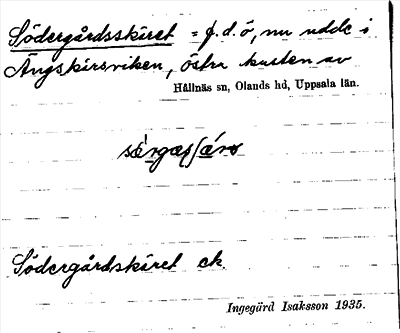 Södergårdsskäret = f.d. ö, nu udde i
Ängskärsviken, östra kusten av
Hållnäs sn, Olands hd, Uppsala län.
Södergårdskäret ek.
Ingegärd Isaksson 1935.